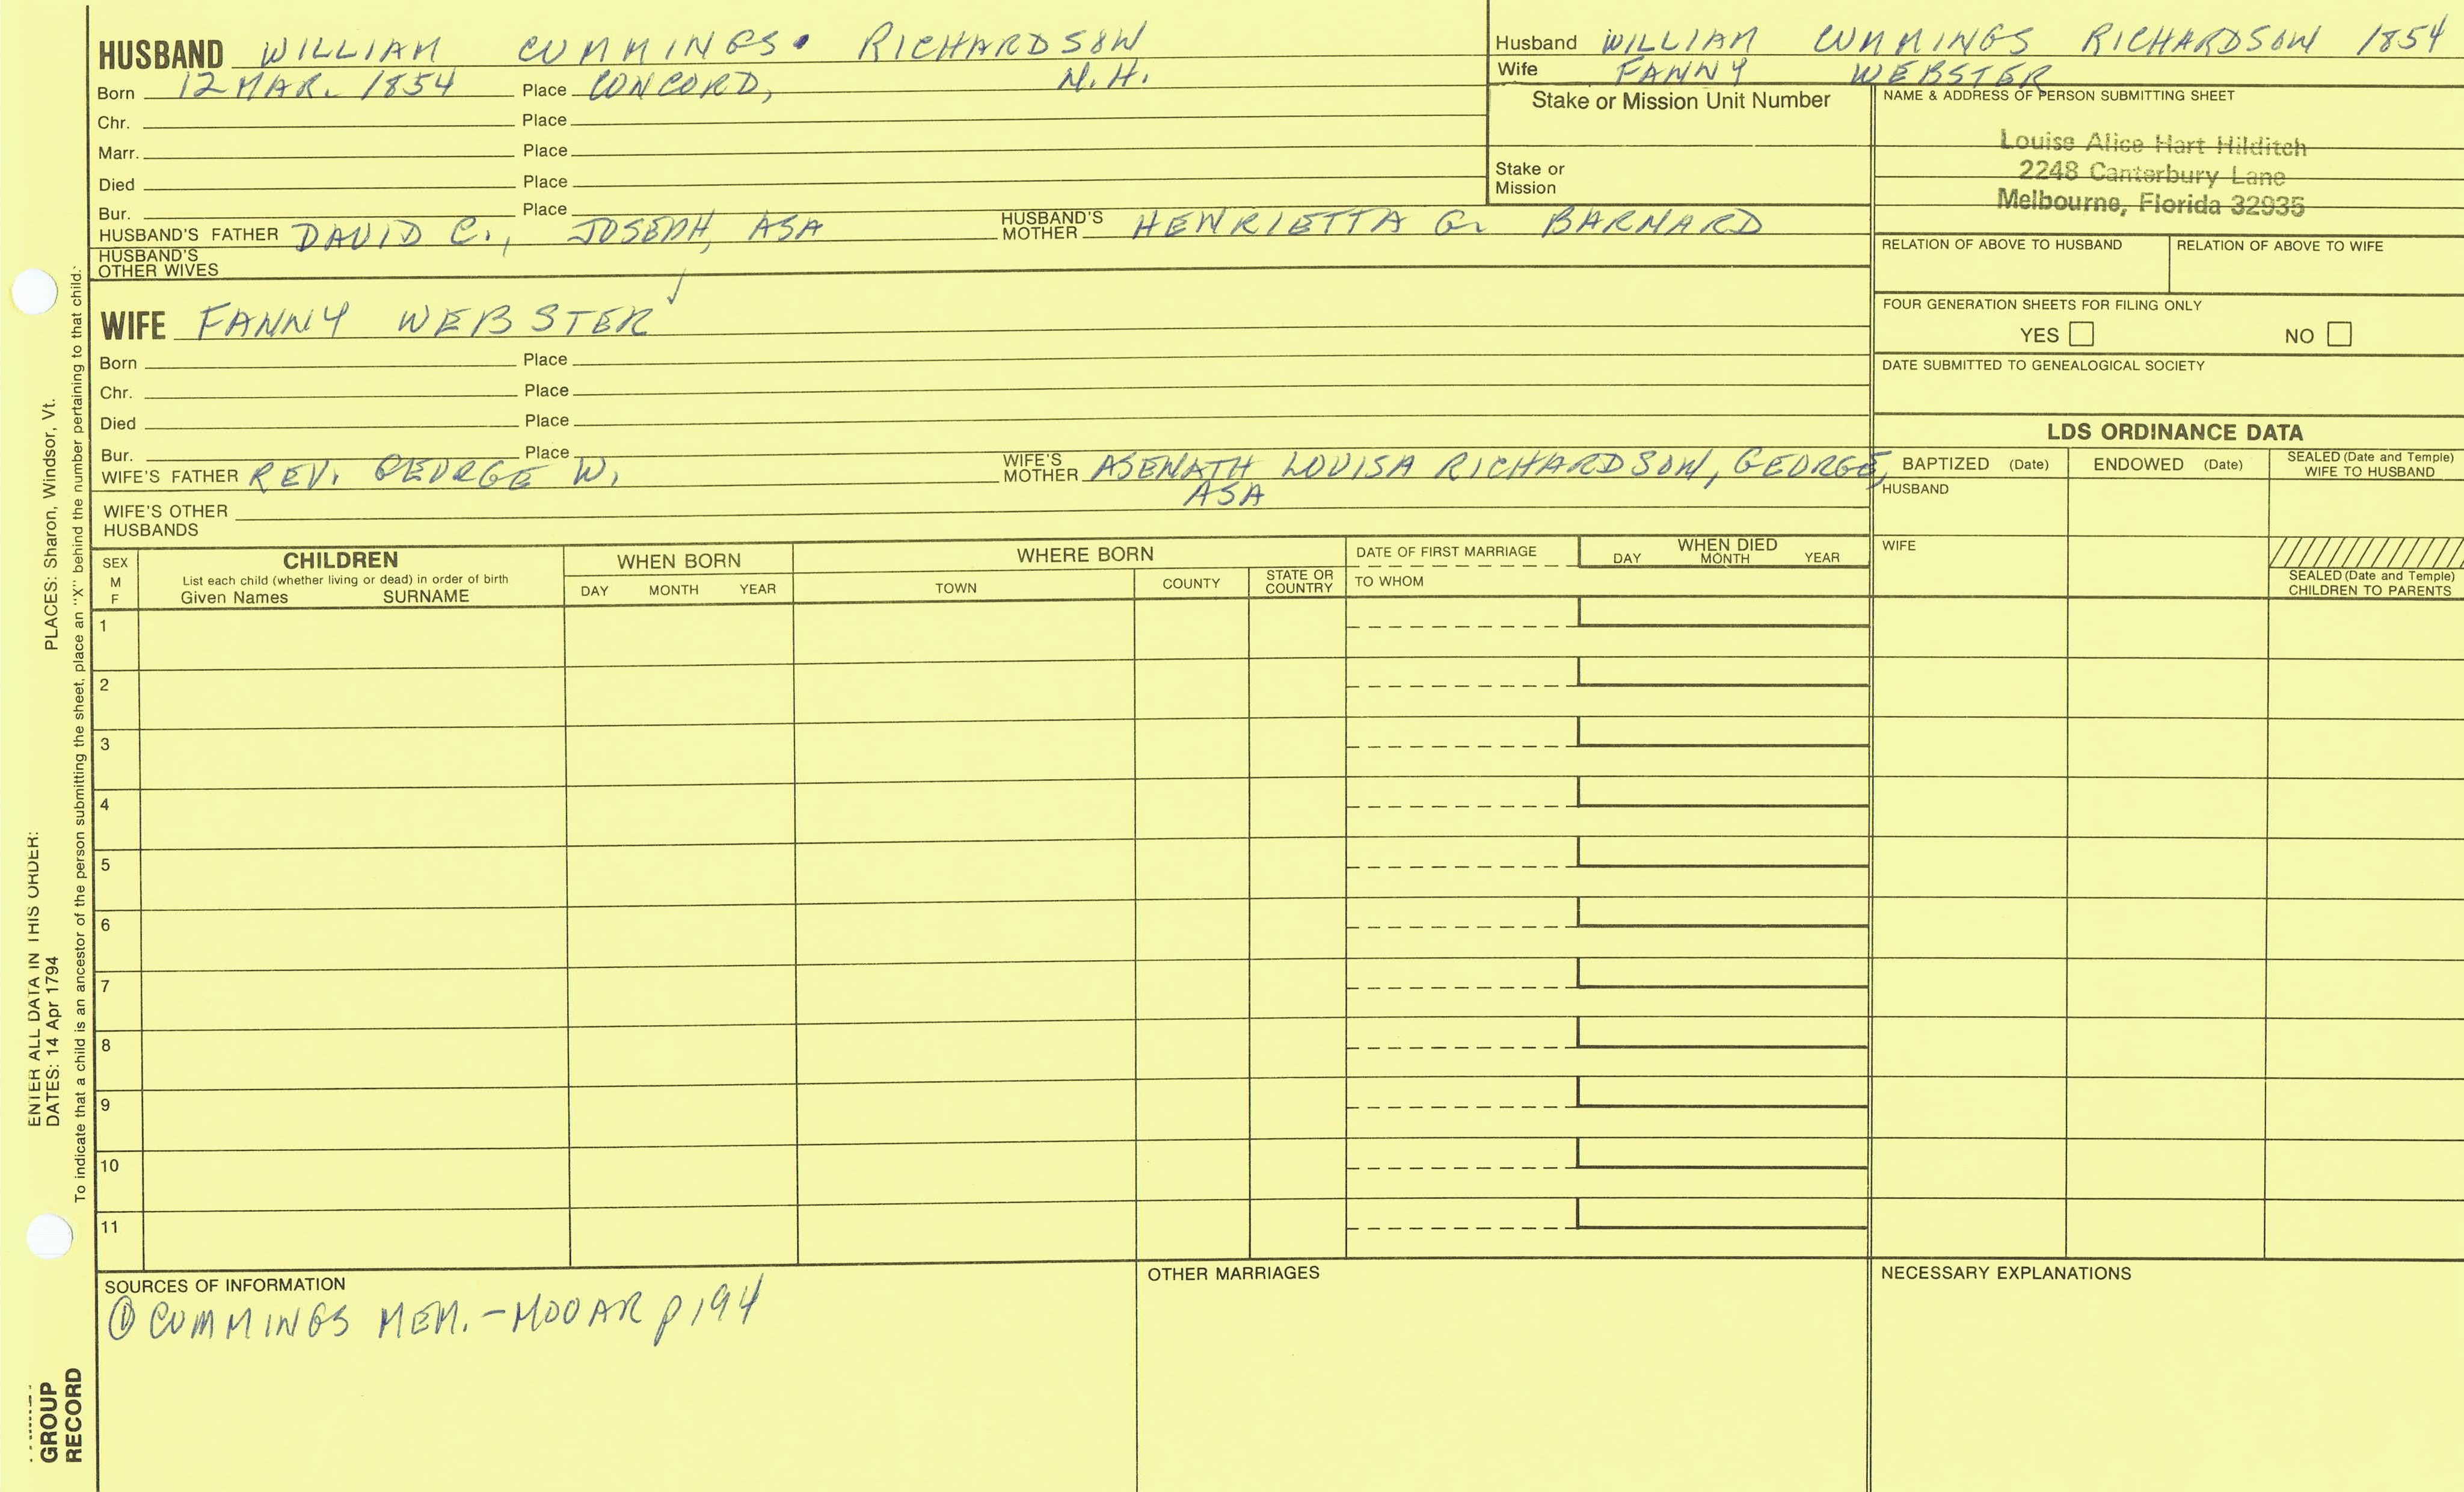 HUSBAND WILLIAM CUMMINGS. RICHARDSON
Born 12 MAR. 1854 Place CONCORD, N.H.
Chr. Place
Marr. Place
Died Place
Bur. Place
HUSBAND'S FATHER DAVID C., JOSEPH, ASA HUSBAND'S MOTHER HENRIETTA G. BARNARD
HUSBAND'S OTHER WIVES
WIFE FANNY WEBSTER ✓
Born Place
Chr. Place
Died Place
Bur. Place
WIFE'S FATHER REV. GEORGE W. WIFE'S MOTHER ASENATH LOUISA RICHARDSON, GEORGE,
ASA
WIFE'S OTHER HUSBANDS
Husband WILLIAM CUMMINGS RICHARDSON 1854
Wife FANNY WEBSTER
Stake or Mission Unit Number
Stake or Mission
NAME & ADDRESS OF PERSON SUBMITTING SHEET
Louise Alice Hart Hilditch
2248 Canterbury Lane
Melbourne, Florida 32935
RELATION OF ABOVE TO HUSBAND RELATION OF ABOVE TO WIFE
FOUR GENERATION SHEETS FOR FILING ONLY
YES NO
DATE SUBMITTED TO GENEALOGICAL SOCIETY
LDS ORDINANCE DATA
BAPTIZED (Date) ENDOWED (Date) SEALED (Date and Temple) WIFE TO HUSBAND
HUSBAND
WIFE
SEALED (Date and Temple) CHILDREN TO PARENTS
SEX M F
CHILDREN
List each child (whether living or dead) in order of birth
Given Names SURNAME
WHEN BORN
DAY MONTH YEAR
WHERE BORN
TOWN COUNTY STATE OR COUNTRY
DATE OF FIRST MARRIAGE
TO WHOM
WHEN DIED
DAY MONTH YEAR
1
2
3
4
5
6
7
8
9
10
11
SOURCES OF INFORMATION
① CUMMINGS MEM. - MOOAR p 194
OTHER MARRIAGES
NECESSARY EXPLANATIONS
ENTER ALL DATA IN THIS ORDER:
DATES: 14 Apr 1794 PLACES: Sharon, Windsor, Vt.
To indicate that a child is an ancestor of the person submitting the sheet, place an "X" behind the number pertaining to that child.
GROUP
RECORD